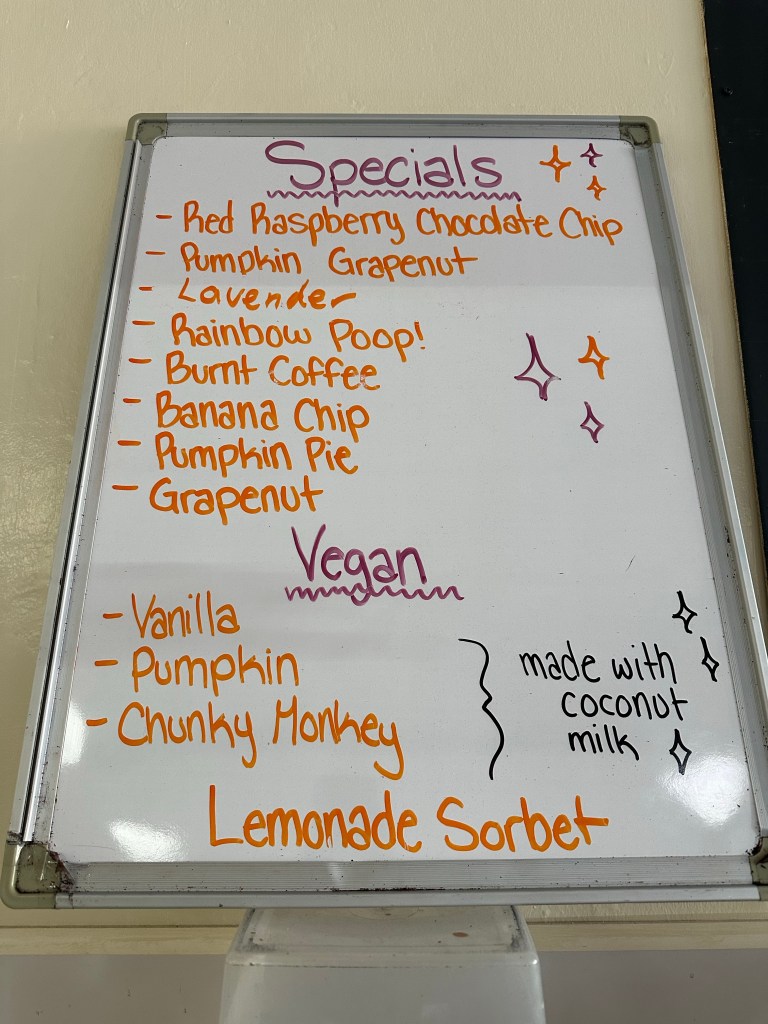 Specials
- Red Raspberry Chocolate Chip
- Pumpkin Grapenut
- Lavender
- Rainbow Poop!
- Burnt Coffee
- Banana Chip
- Pumpkin Pie
- Grapenut
Vegan
- Vanilla
- Pumpkin
- Chunky Monkey
made with
coconut
milk
Lemonade Sorbet